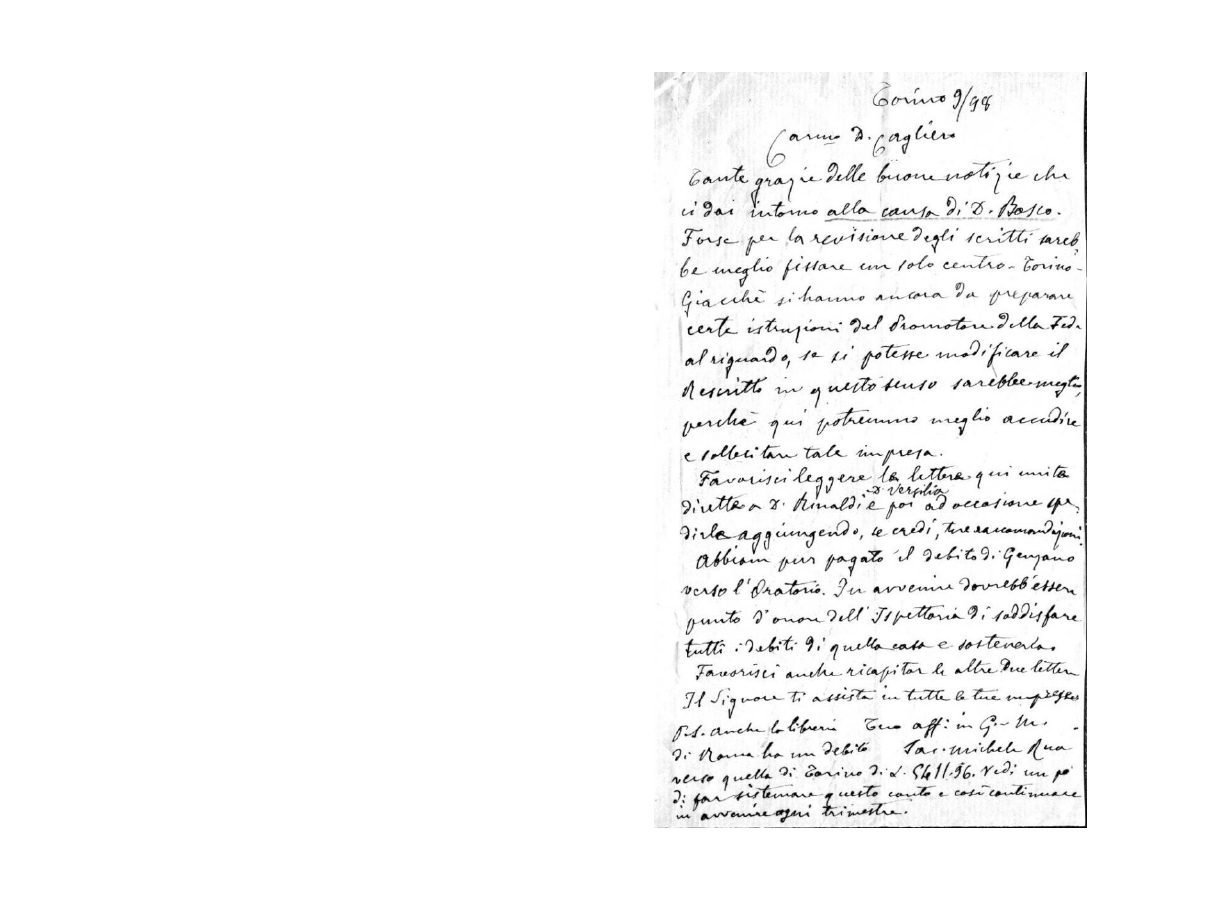 Torino 9/98
Carmo D. Cagliero
Tante grazie delle buone notizie che
ci dai intorno alla causa di D. Bosco.
Forse per la revisione degli scritti sareb
be meglio fissare un solo centro - Torino -
Giacchè si hanno ancora da preparare
certe istruzioni del Promotore della Fede
al riguardo, se si potesse modificare il
Rescritto in questo senso sarebbe meglio,
perchè qui potremmo meglio accudire
e sollecitare tale impresa.
Favorisci leggere la lettera qui unita
diretta a D. Rinaldi e D. Versiglia poi ad occasione spe-
dirle aggiungendo, se credi, tue raccomandazioni.
Abbiam pur pagato il debito di Genzano
verso l'Oratorio. In avvenire dovrebb'essere
punto d'onore dell'Ispettoria di soddisfare
tutti i debiti di quella casa e sostenerla.
Favorisci anche ricapitar le altre due lettere
Il Signore ti assista in tutte le tue imprese
P.S. anche la libreria Tuo aff: in G. M.
di Roma ha un debito Sac. Michele Rua
verso quella di Torino di L. 5411.96. Vedi un po'
di far sistemare questo conto e così continuare
in avvenire ogni trimestre.